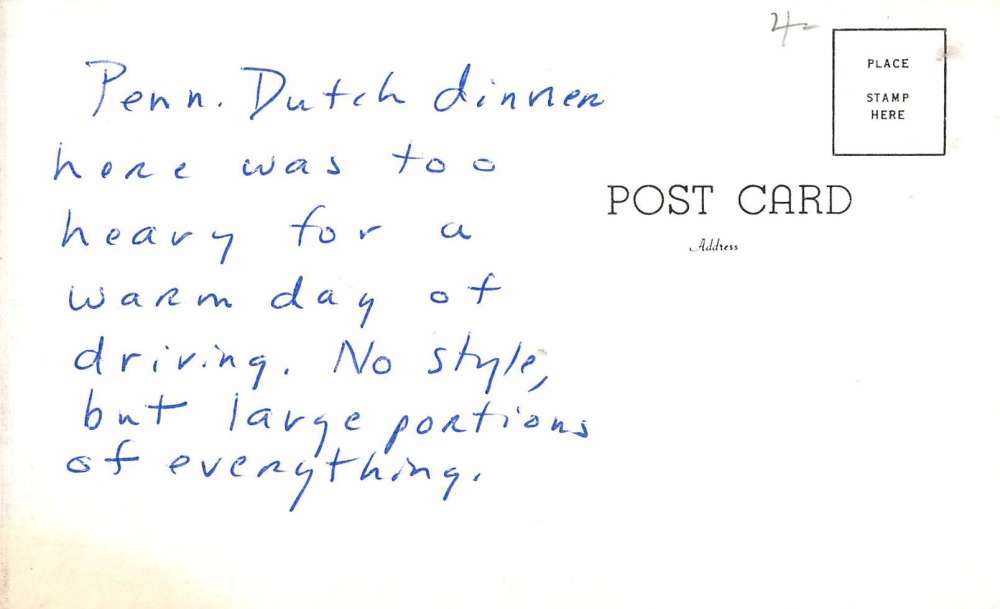 4-
PLACE
STAMP
HERE
POST CARD
Address
Penn. Dutch dinner
here was too
heavy for a
warm day of
driving. No style,
but large portions
of everything.